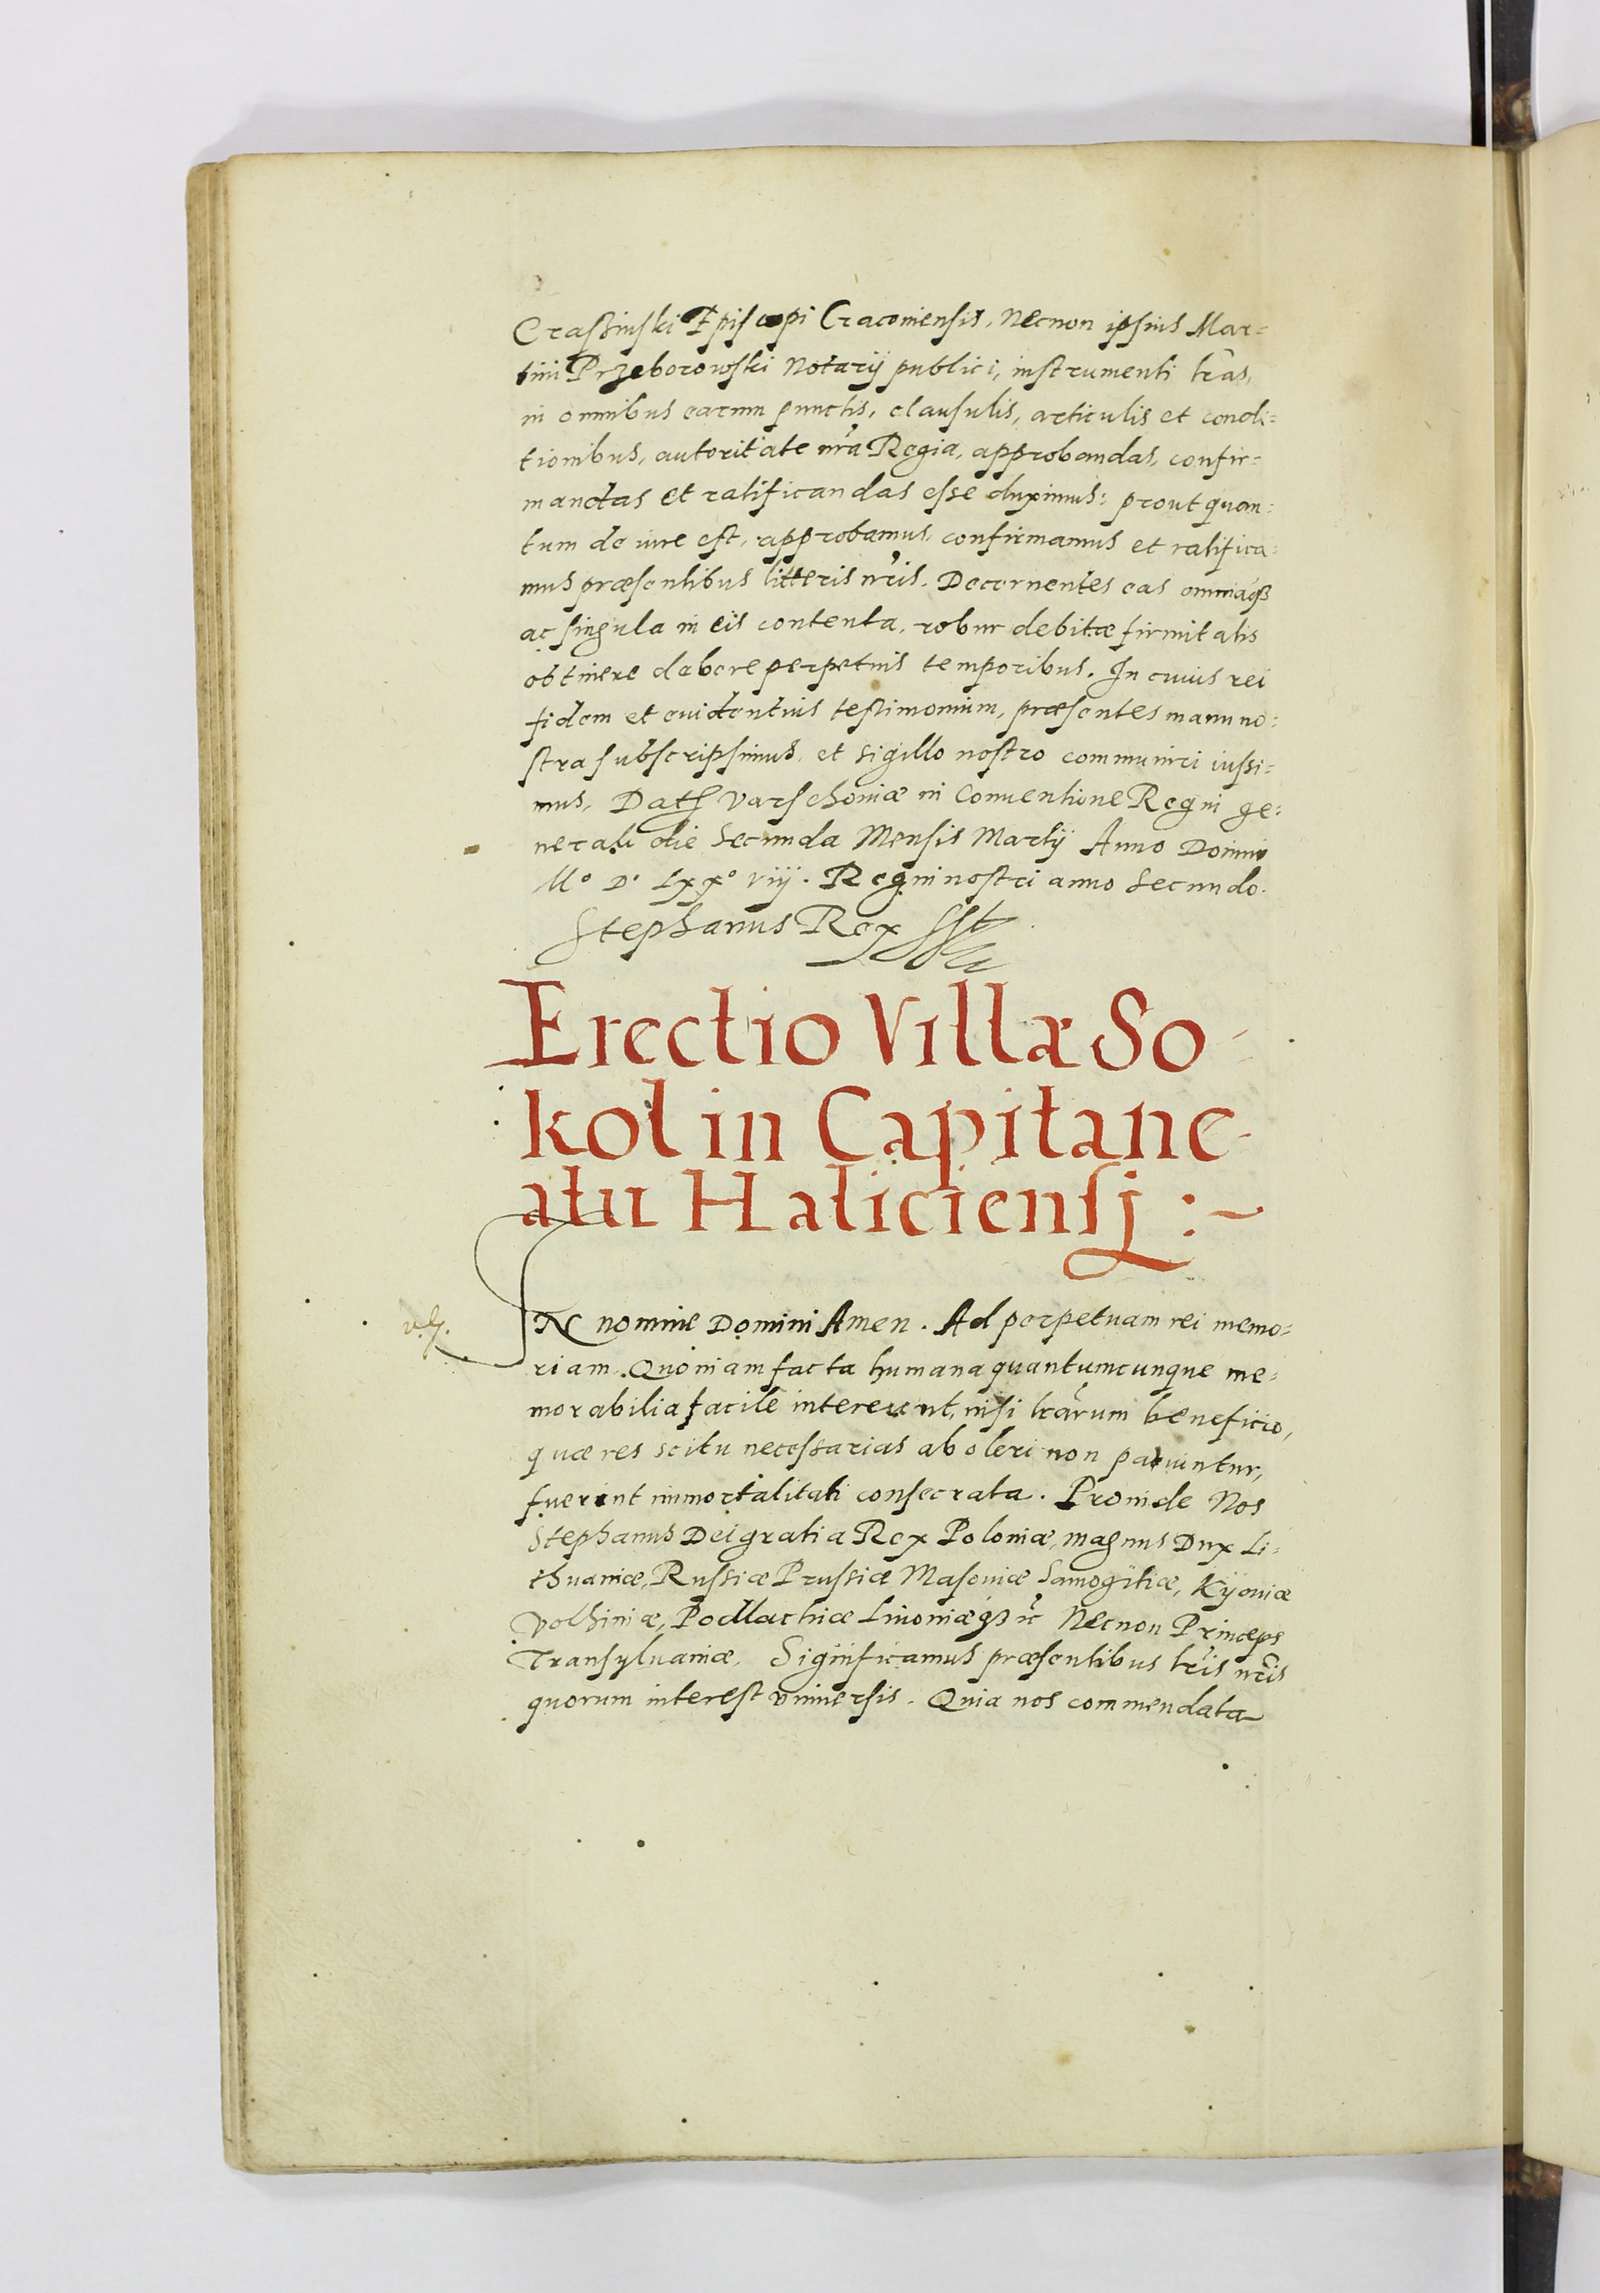 Craſsinski Episcopi Cracouiensis, Necnon ipsius Mar=
tini Przeborowski Notarij publici, instrumenti lr̃as,
in omnibus earum punctis, clausulis, articulis et condi=
tionibus, autoritate nr̃a Regia, approbandas, confir=
mandas et ratificandas eſse duximus: prout quan=
tum de iure est, approbamus, confirmamus et ratifica=
mus præsentibus litteris nr̃is. Decernentes eas omniaqȝ
ac singula in eis contenta, robur debitæ firmitatis
obtinere debere perpetuis temporibus. In cuius rei
fidem et euidentius testimonium, præsentes manu no=
stra subscripsimus, et sigillo nostro communiri iuſsi=
mus. Dat Varschouiæ in Conuentione Regni ge=
nerali die Secunda Mensis Martij Anno Domini
Mº Dº Lxxº viij. Regni nostri anno Secundo.
Stephanus Rex
Erectio Villæ So-
kol in Capitane-
atu Haliciensi :~
IN nomine Domini Amen. Ad perpetuam rei memo=
riam. Quoniam facta humana quantumcunque me=
morabilia facile intereunt, nisi lr̃arum beneficio,
quæ res scitu neceſsarias aboleri non patiuntur,
fuerint immortalitati consecrata. Proinde Nos
Stephanus Dei gratia Rex Poloniæ, Magnus Dux Li=
thuaniæ, Ruſsiæ Pruſsiæ Masouiæ Samogitiæ, Kijouiæ
Volhiniæ, Podlachiæ Liuoniæqȝ &c̃ Necnon Princeps
Transyluaniæ. Significamus præsentibus lr̃is nr̃is
quorum interest vniuersis. Quia nos commendata